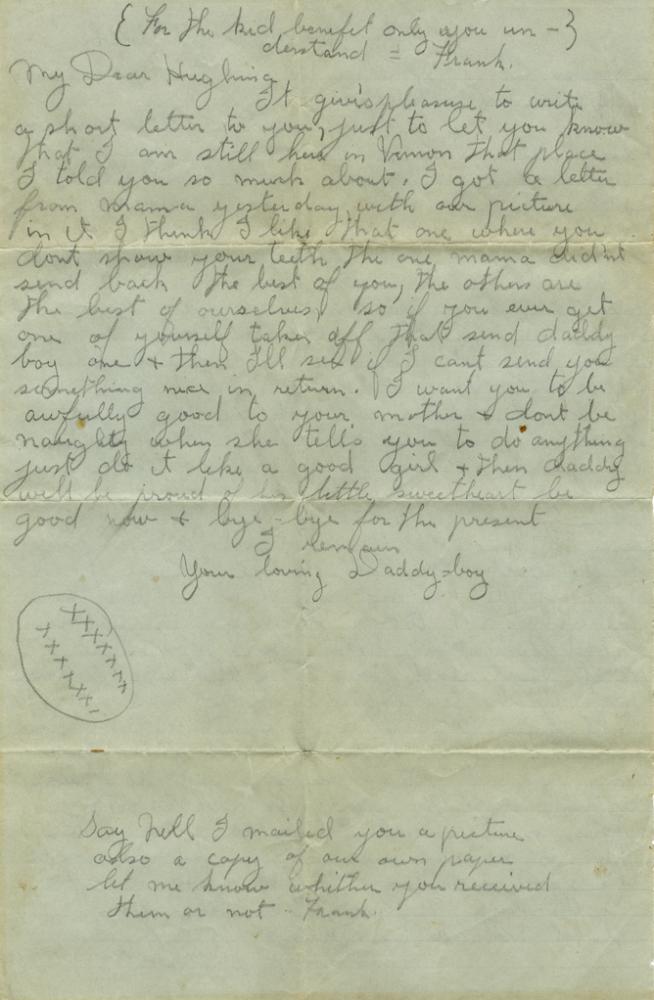 {For the kid benefit only you un-}
derstand = Frank.
My Dear Hughina
It give's pleasure to write
a short letter to you, just to let you know
that I am still here in Vernon that place
I told you so much about. I got a letter
from mama yesterday with our picture
in it I think I like that one where you
dont show your teeth, the one mama didn't
send back the best of you, the others are
the best of ourselves, so if you ever get
one of yourself taken off that send daddy
boy one + then I'll see if I cant send you
something nice in return. I want you to be
awfully good to your mother & dont be
naughty when she tells you to do anything
just do it like a good girl + then daddy
will be proud of his little sweetheart be
good now + bye-bye for the present
I remain
Your loving Daddy-boy
x x x x x x x x
x x x x x x x x
Say Nell I mailed you a picture
also a copy of our own paper
let me know whither you received
them or not - Frank.